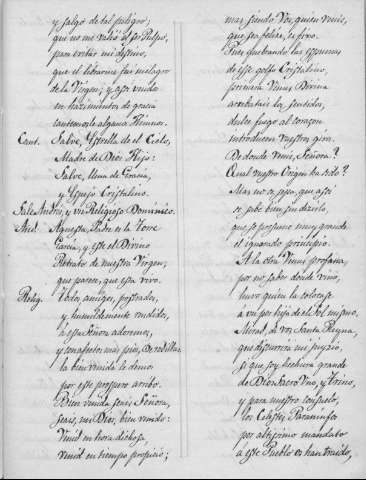 y salgo de tal peligro;
que no me valió el ser Pulpo,
para evitar mi destino,
que el librarme fué milagro
de la Virgen; y así unido
en hacimientos de gracia
cantemosle algunos Himnos.
Cant. Salve, Estrella de el Cielo,
Madre de Dios Hijo:
Salve, Urna de Gracia,
y Espejo Cristalino.
Sale Andrés, y un Religioso Dominico.
And. Aquesta, Padre es la Torre
García, y este el Divino
Retrato de nuestra Virgen;
que parece, que está vivo.
Relig. Todos, amigos, postrados,
y humildemente rendidos,
à esta Señora adoremos,
y con afectos mas pios, De rodillas
la bien venida le demos
por este prospero arribo.
Bien venida seais Señora,
seais, mi Dios, bien venido:
Venid en hora dichosa,
venid en tiempo propicio;
mas siendo Vos, quien venis,
que sea feliz, es fixo.
Pues quebrando las espumas
de ese golfo Cristalino,
primera Venus Divina
arrebatais los sentidos,
dulce fuego al corazon
introducen vuestros giros.
De donde venis, Señora?
Cual vuestro Origen ha sido?
Mas no se sepa, que así
se sabe bien su decirlo,
que se presume muy grande
el ignorado principio.
A la otra Venus profana,
por no saber donde vino,
huvo quien la colocase
à ser por hija de el Sol mismo.
Mirad, de vos Santa Reyna,
que discurrira mi juyzio,
si que soys hechura grande
de Dios Sacro Uno, y Trino,
y para nuestro consuelo,
los Celestes Paraninfos
por altisimo mandato
à este Pueblo os han traido,